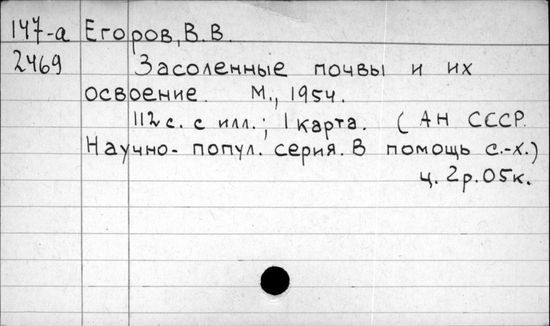 147-а Егоров, В.В.
2469 Засоленные почвы и их
освоение. М., 1954.
112 с. с илл.; 1 карта. (АН СССР.
Научно-попул. серия. В помощь с.-х.)
ц. 2р.05к.